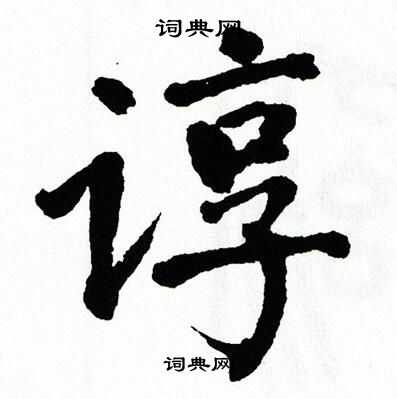 词典网
谆
词典网